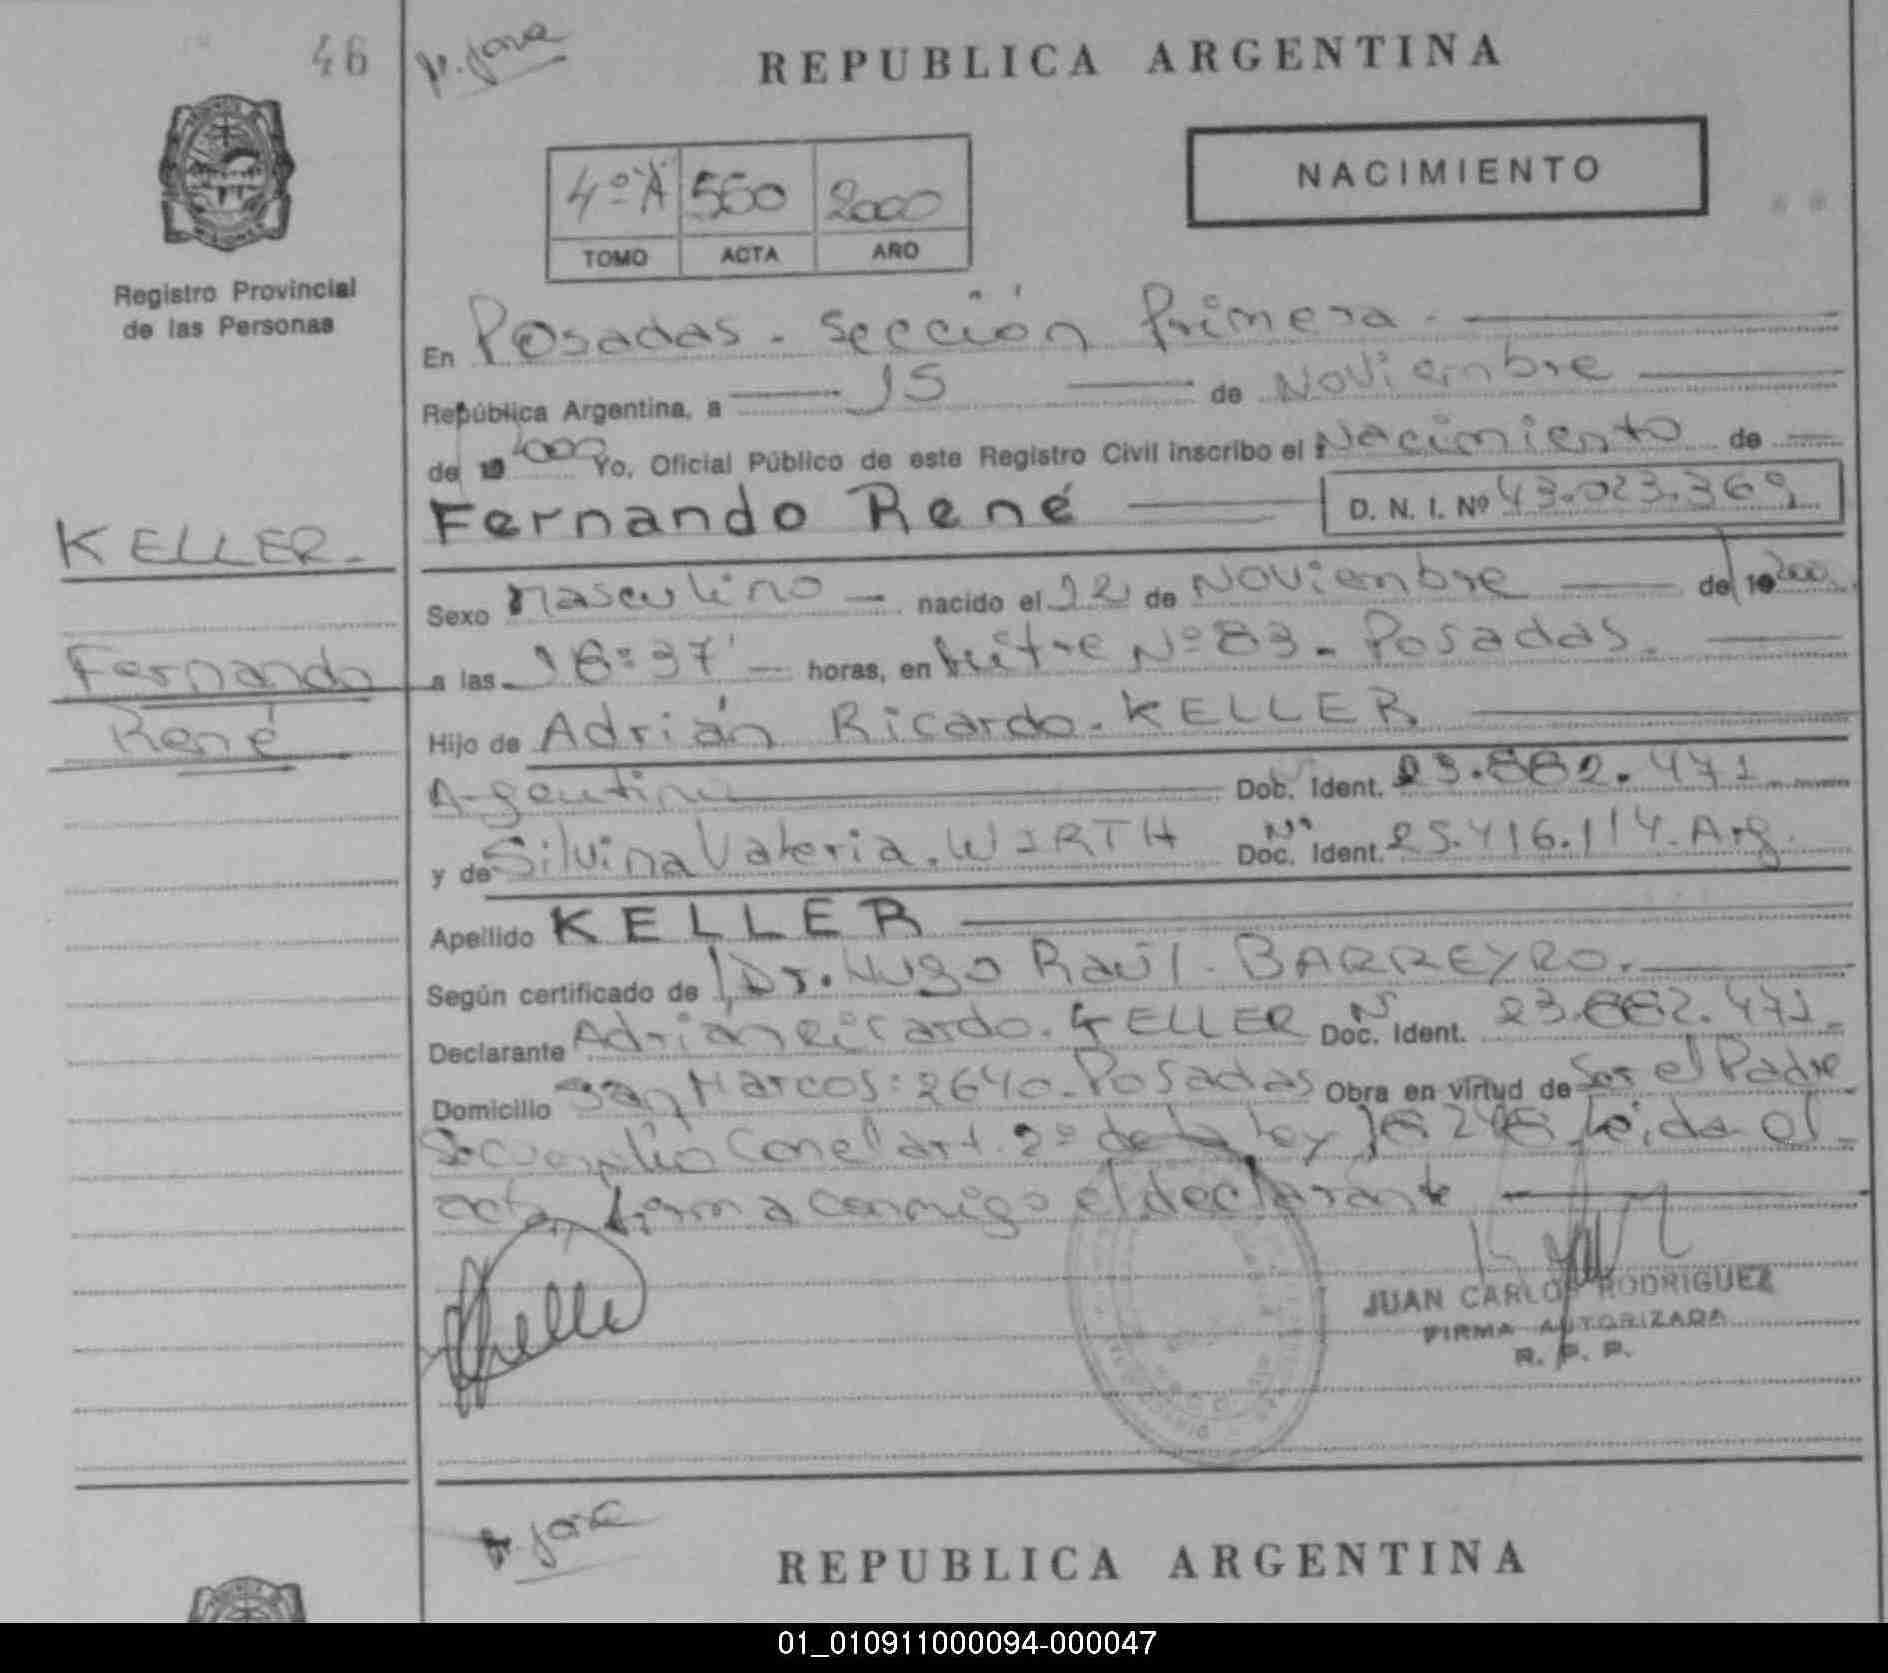 46
REPUBLICA ARGENTINA
4º A 550 2000
TOMO ACTA AÑO
NACIMIENTO
Registro Provincial
de las Personas
En Posadas - Sección Primera
República Argentina, a 15 de Noviembre
de 2000 Yo, Oficial Público de este Registro Civil inscribo el Nacimiento de
Fernando René D. N. I. Nº 43.023.369
KELLER
Fernando
René
Sexo Masculino nacido el 12 de Noviembre de 2000
a las 18:37 horas, en Mitre Nº 83 - Posadas.
Hijo de Adrián Ricardo - KELLER
Argentina Doc. Ident. 23.882.471
y de Silvina Valeria. WIRTH Doc. Ident. Nº 25.416.114. Arg.
Apellido KELLER
Según certificado de Dr. Hugo Raúl - BARREYRO.
Declarante Adrian Ricardo. KELLER Doc. Ident. Nº 23.882.471
Domicilio San Marcos: 2640 - Posadas Obra en virtud de Ser el Padre
Se cumplio con el art. 2º de la ley 18248 Leida el
acta, firma conmigo el declarante
JUAN CARLOS RODRIGUEZ
FIRMA AUTORIZADA
R. P. P.
REPUBLICA ARGENTINA
01_010911000094-000047